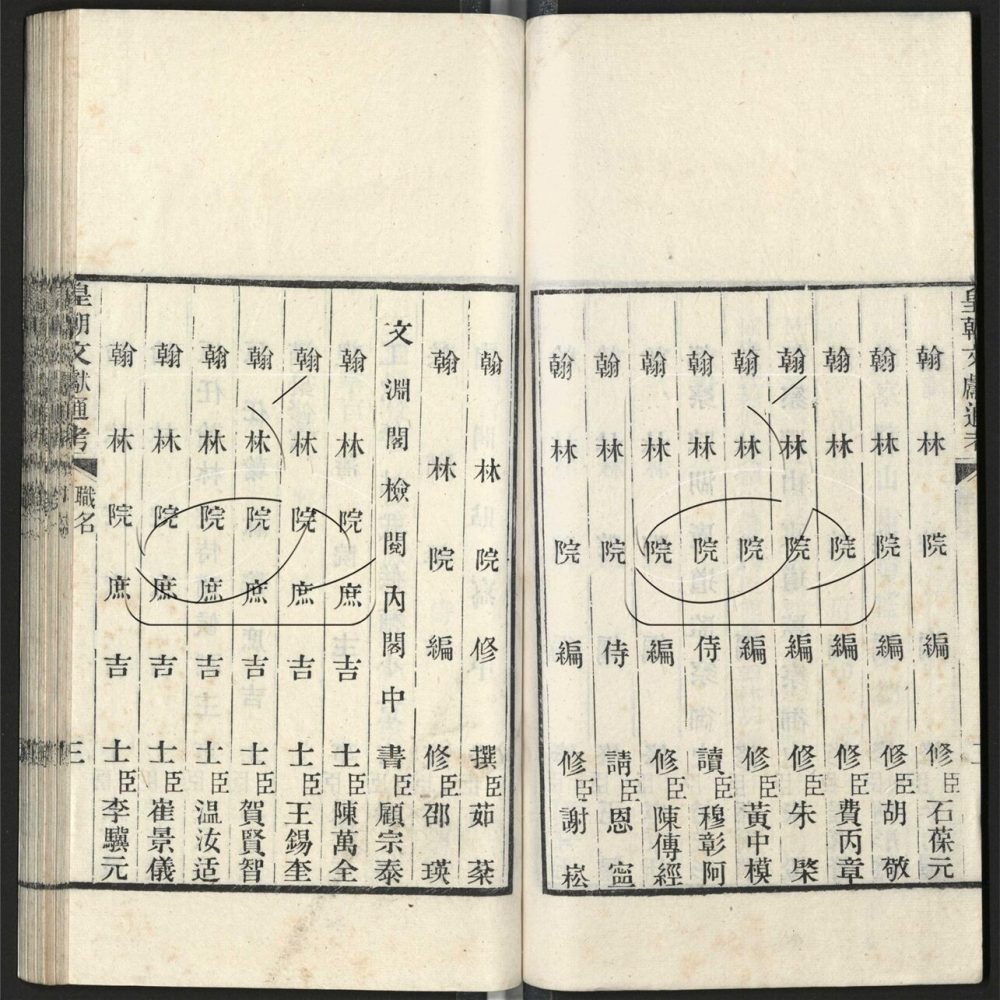 皇朝文獻通考
翰林院編修臣石葆元
翰林院編修臣胡敬
翰林院編修臣費丙章
翰林院編修臣朱棨
翰林院編修臣黃中模
翰林院侍讀臣穆彰阿
翰林院編修臣陳傳經
翰林院侍請臣恩寧
翰林院編修臣謝崧
翰林院修撰臣茹棻
翰林院編修臣邵瑛
文淵閣檢閱內閣中書臣顧宗泰
翰林院庶吉士臣陳萬全
翰林院庶吉士臣王錫奎
翰林院庶吉士臣賀賢智
翰林院庶吉士臣溫汝适
翰林院庶吉士臣崔景儀
翰林院庶吉士臣李驥元
皇朝文獻通考 職名 三